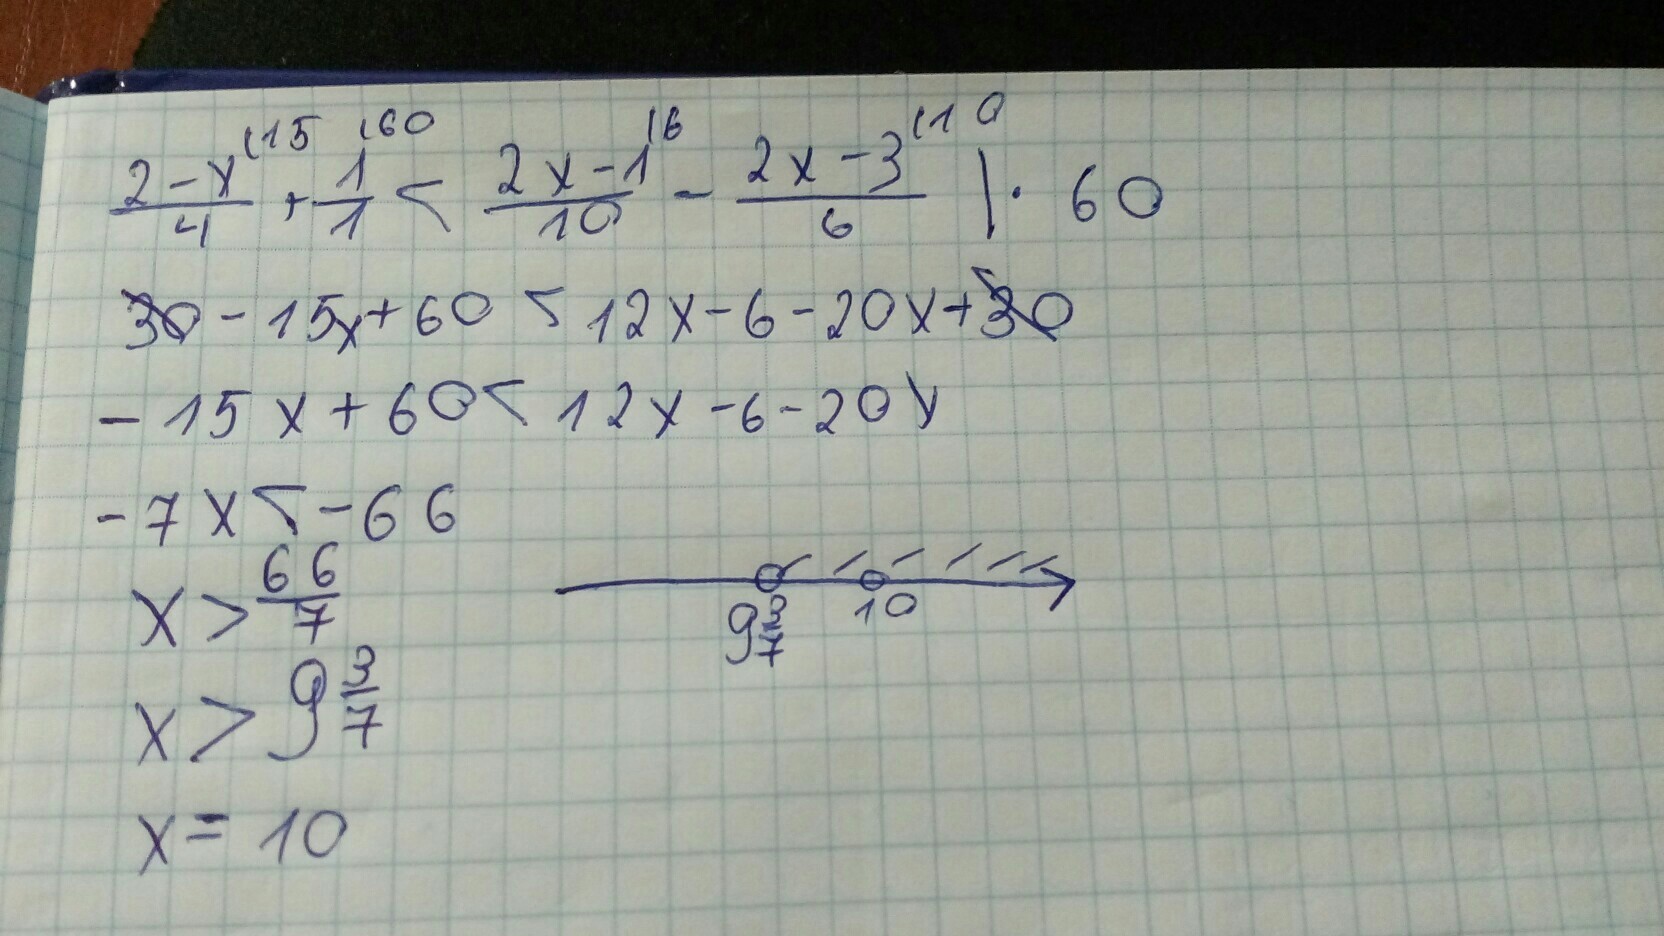 (2-x)/4 (15 + 1/1 (60 < (2x-1)/10 (6 - (2x-3)/6 (10 |· 60
30 - 15x + 60 < 12x - 6 - 20x + 30
- 15x + 60 < 12x - 6 - 20x
- 7x < - 66
x > 66/7
9 3/7 10
x > 9 3/7
x = 10